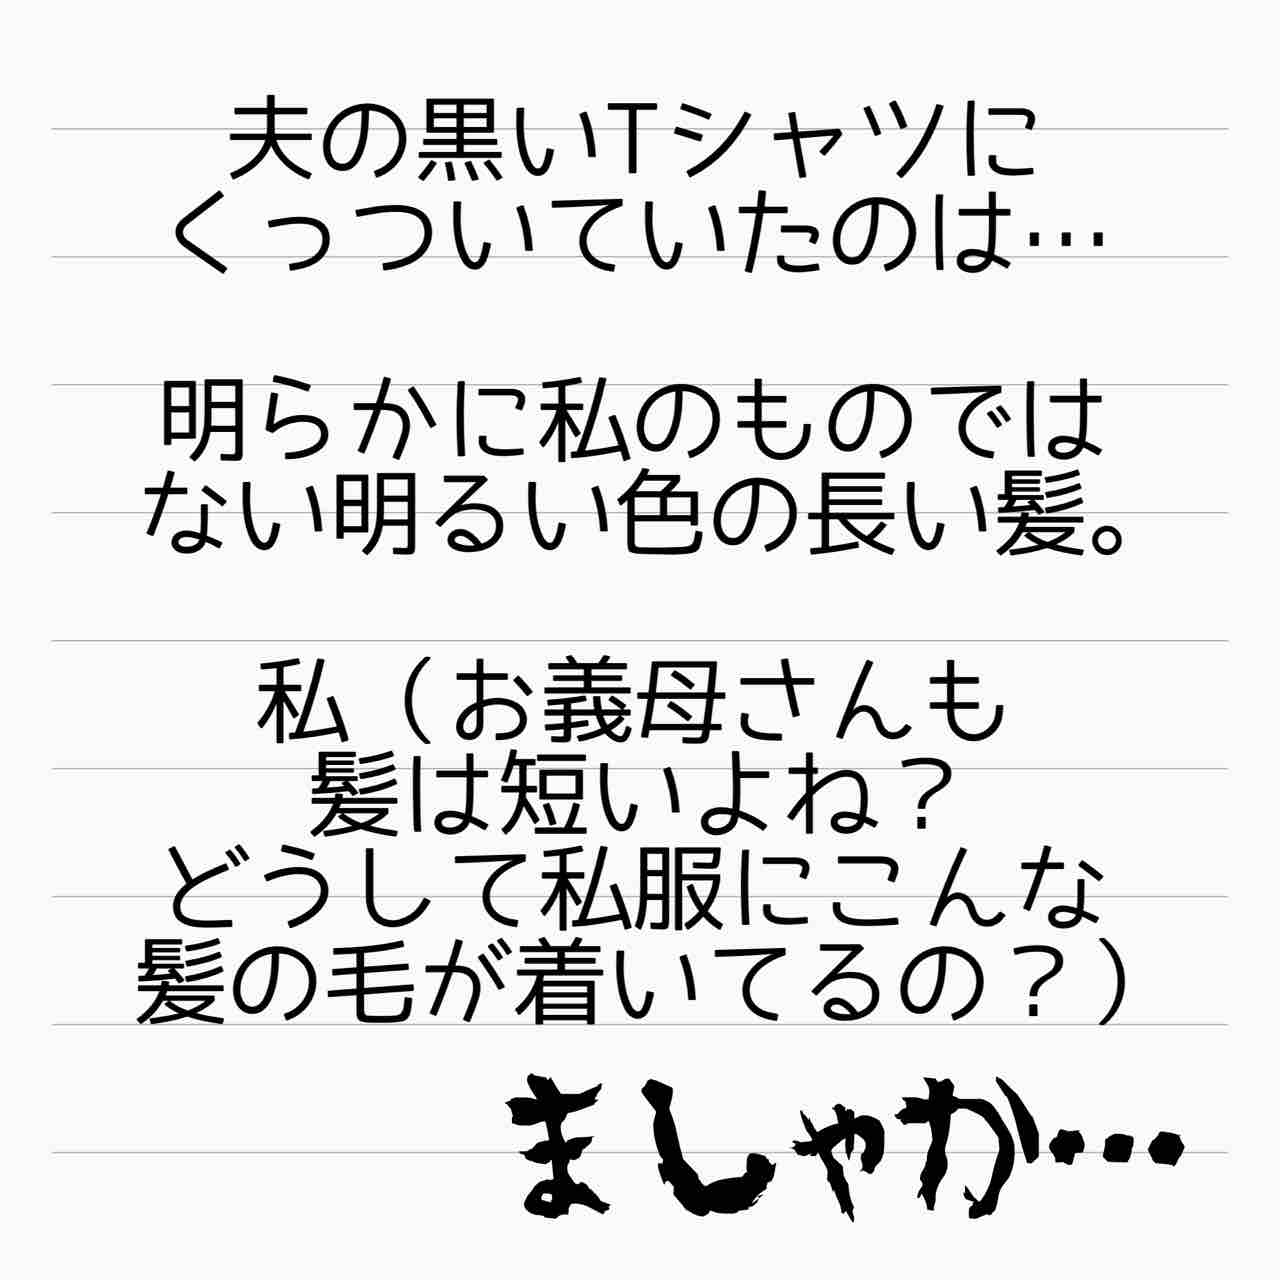 夫の黒いTシャツに
くっついていたのは…
明らかに私のものでは
ない明るい色の長い髪。
私（お義母さんも
髪は短いよね？
どうして私服にこんな
髪の毛が着いてるの？）
ましゃか…